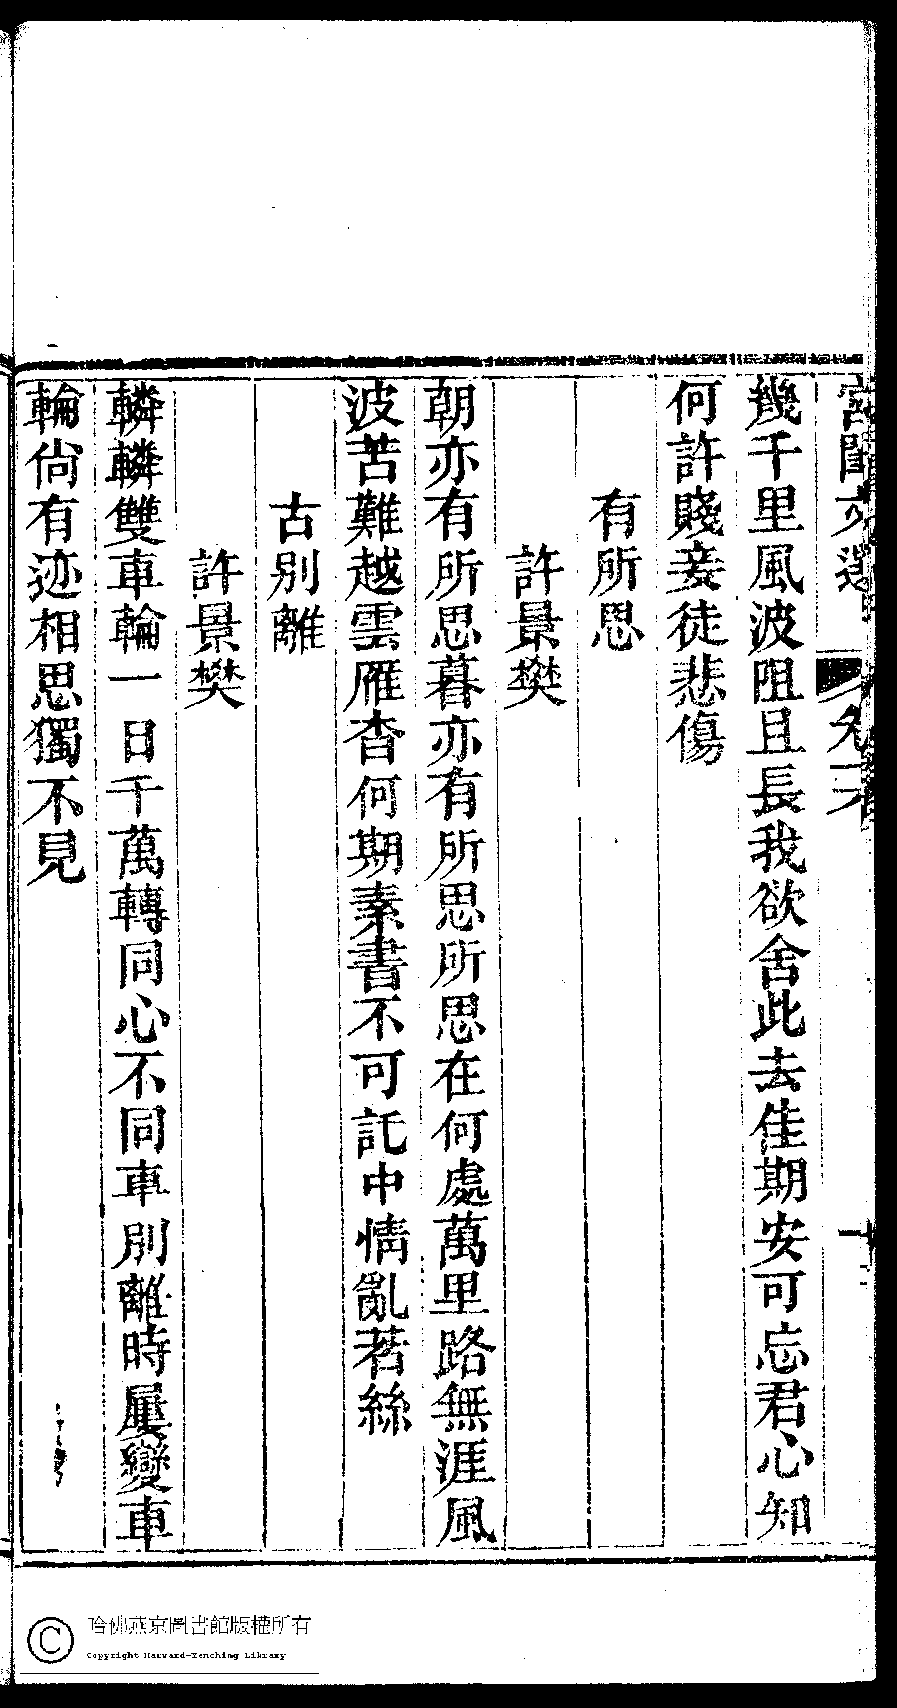 宮閨文選 卷六 十
幾千里風波阻且長我欲舍此去佳期安可忘君心知
何許賤妾徒悲傷
有所思
許景樊
朝亦有所思暮亦有所思所思在何處萬里路無涯風
波苦難越雲雁杳何期素書不可託中情亂若絲
古別離
許景樊
轔轔雙車輪一日千萬轉同心不同車別離時屢變車
輪尙有迹相思獨不見
哈佛燕京圖書館版權所有
Copyright Harvard-Yenching Library